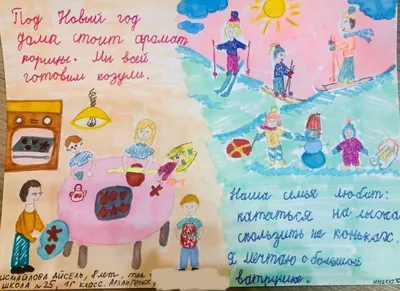 Под Новый год
дома стоит аромат
корицы. Мы всей
готовим козули.
Наша семья любит:
кататься на лыжа
скользить на коньках.
Я мечтаю о большой
ватрушке.
ИСМАЙЛОВА АЙСЕЛЬ, 8 лет,
ШКОЛА №25, 1Г класс. АРХАНГЕЛЬСК,